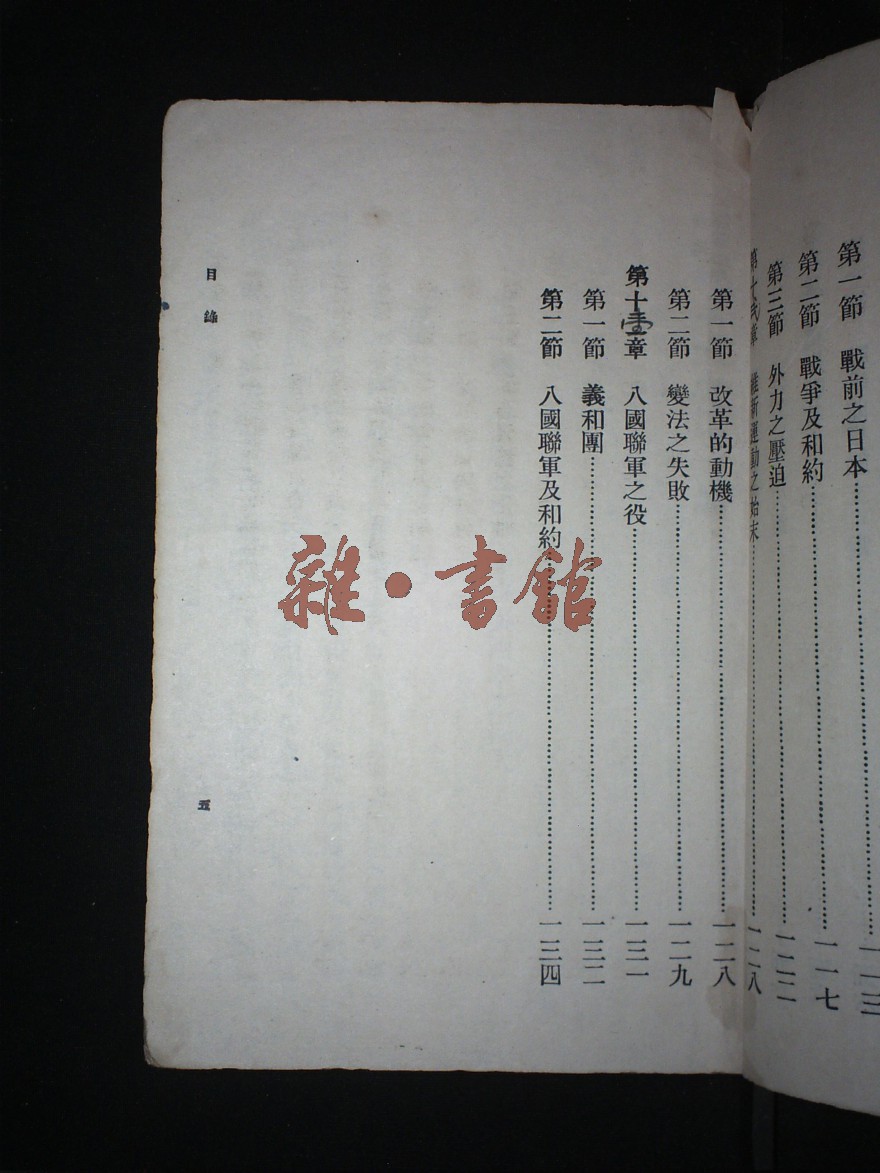 第一節 戰前之日本……一一三
第二節 戰爭及和約……一一七
第三節 外力之壓迫……一二二
第十弍章 維新運動之始末……一二八
第一節 改革的動機……一二八
第二節 變法之失敗……一二九
第十三章 八國聯軍之役……一三一
第一節 義和團……一三二
第二節 八國聯軍及和約……一三四
目錄
五
雜·書館